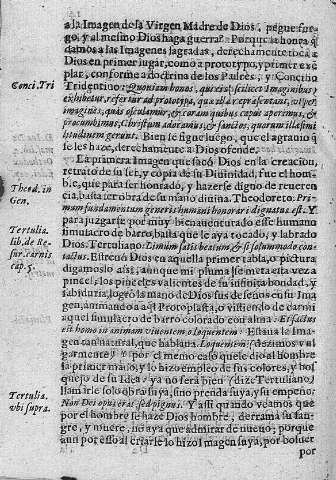 a la Imagen de la Virgen Madre de Dios, pegue fue-
go, y al mesmo Dios haga guerra? Porque la honra q̃
damos a las Imagenes sagradas, derechamente toca a
Dios en primer lugar, como a prototypo, y primer exẽ
plar, conforme a doctrina de los Padres, y Concilio
Conci. Tri
Tridentino: Quoniam honos, qui eis scilicet Imaginibus
exhibetur, refertur ad prototypa, quæ illæ repræsentant, ut per
imagines, quas osculamur, & coram quibus caput aperimus, &
procumbimus, Christum adoremus, & sanctos, quorum illæ simi
litudinem gerunt. Bien se sigue luego, que el agrauio q̃
se les haze, derechamente a Dios ofende.
La primera Imagen que sacó Dios en la creacion,
retrato de su ser, y copia de su Diuinidad, fue el hom-
bre, que para ser honrado, y hazerse digno de reueren
Theod. in
Gen.
cia, basta ser obra de su mano diuina. Theodoreto: Pri-
mum fundamentum generis humani honorari dignatus est. Y
para juzgarse por muy bienauenturado esse humano
Tertulia.
lib. de Re-
sur. carnis
cap. 5.
simulacro de barro, baila que le aya tocado, y labrado
Dios. Tertuliano: Limum satis beatum, & si solummodo con-
tactus. Estrenó Dios en aquella primer tabla, o pictura
digamoslo assi, aunque mi pluma se meta esta vez a
pincel, los pinceles valientes de su infinita bondad, y
sabiduria, logró la mano de Dios sus deseos en su Ima
gen, animando a aql Protoplasta, o vistiendo de carmí
aquel simulacro de barro colorado con alma. Et factus
est homo in animam viuentem eloquentem: Estaua la Ima
gen tan natural, que hablaua. Loquentem (dezimos vul
garmente) y por el mesmo caso que le dio al hombre
la primer mano, y lo hizo empleo de sus colores, y bos
quejo de su Idea; ya no será bien (dize Tertuliano)
Tertulia.
vbi supra.
llamarle solo obra suya, sino prenda suya, y su empeño;
Non Dei opus erat, sed pignus. Y assi quando veamos que
por el hombre se haze Dios hombre, derrama su san-
gre, y muere, no aya que admirar de nueuo; porque
aun por esso al criarle lo hizo Imagen suya, por boluer
por